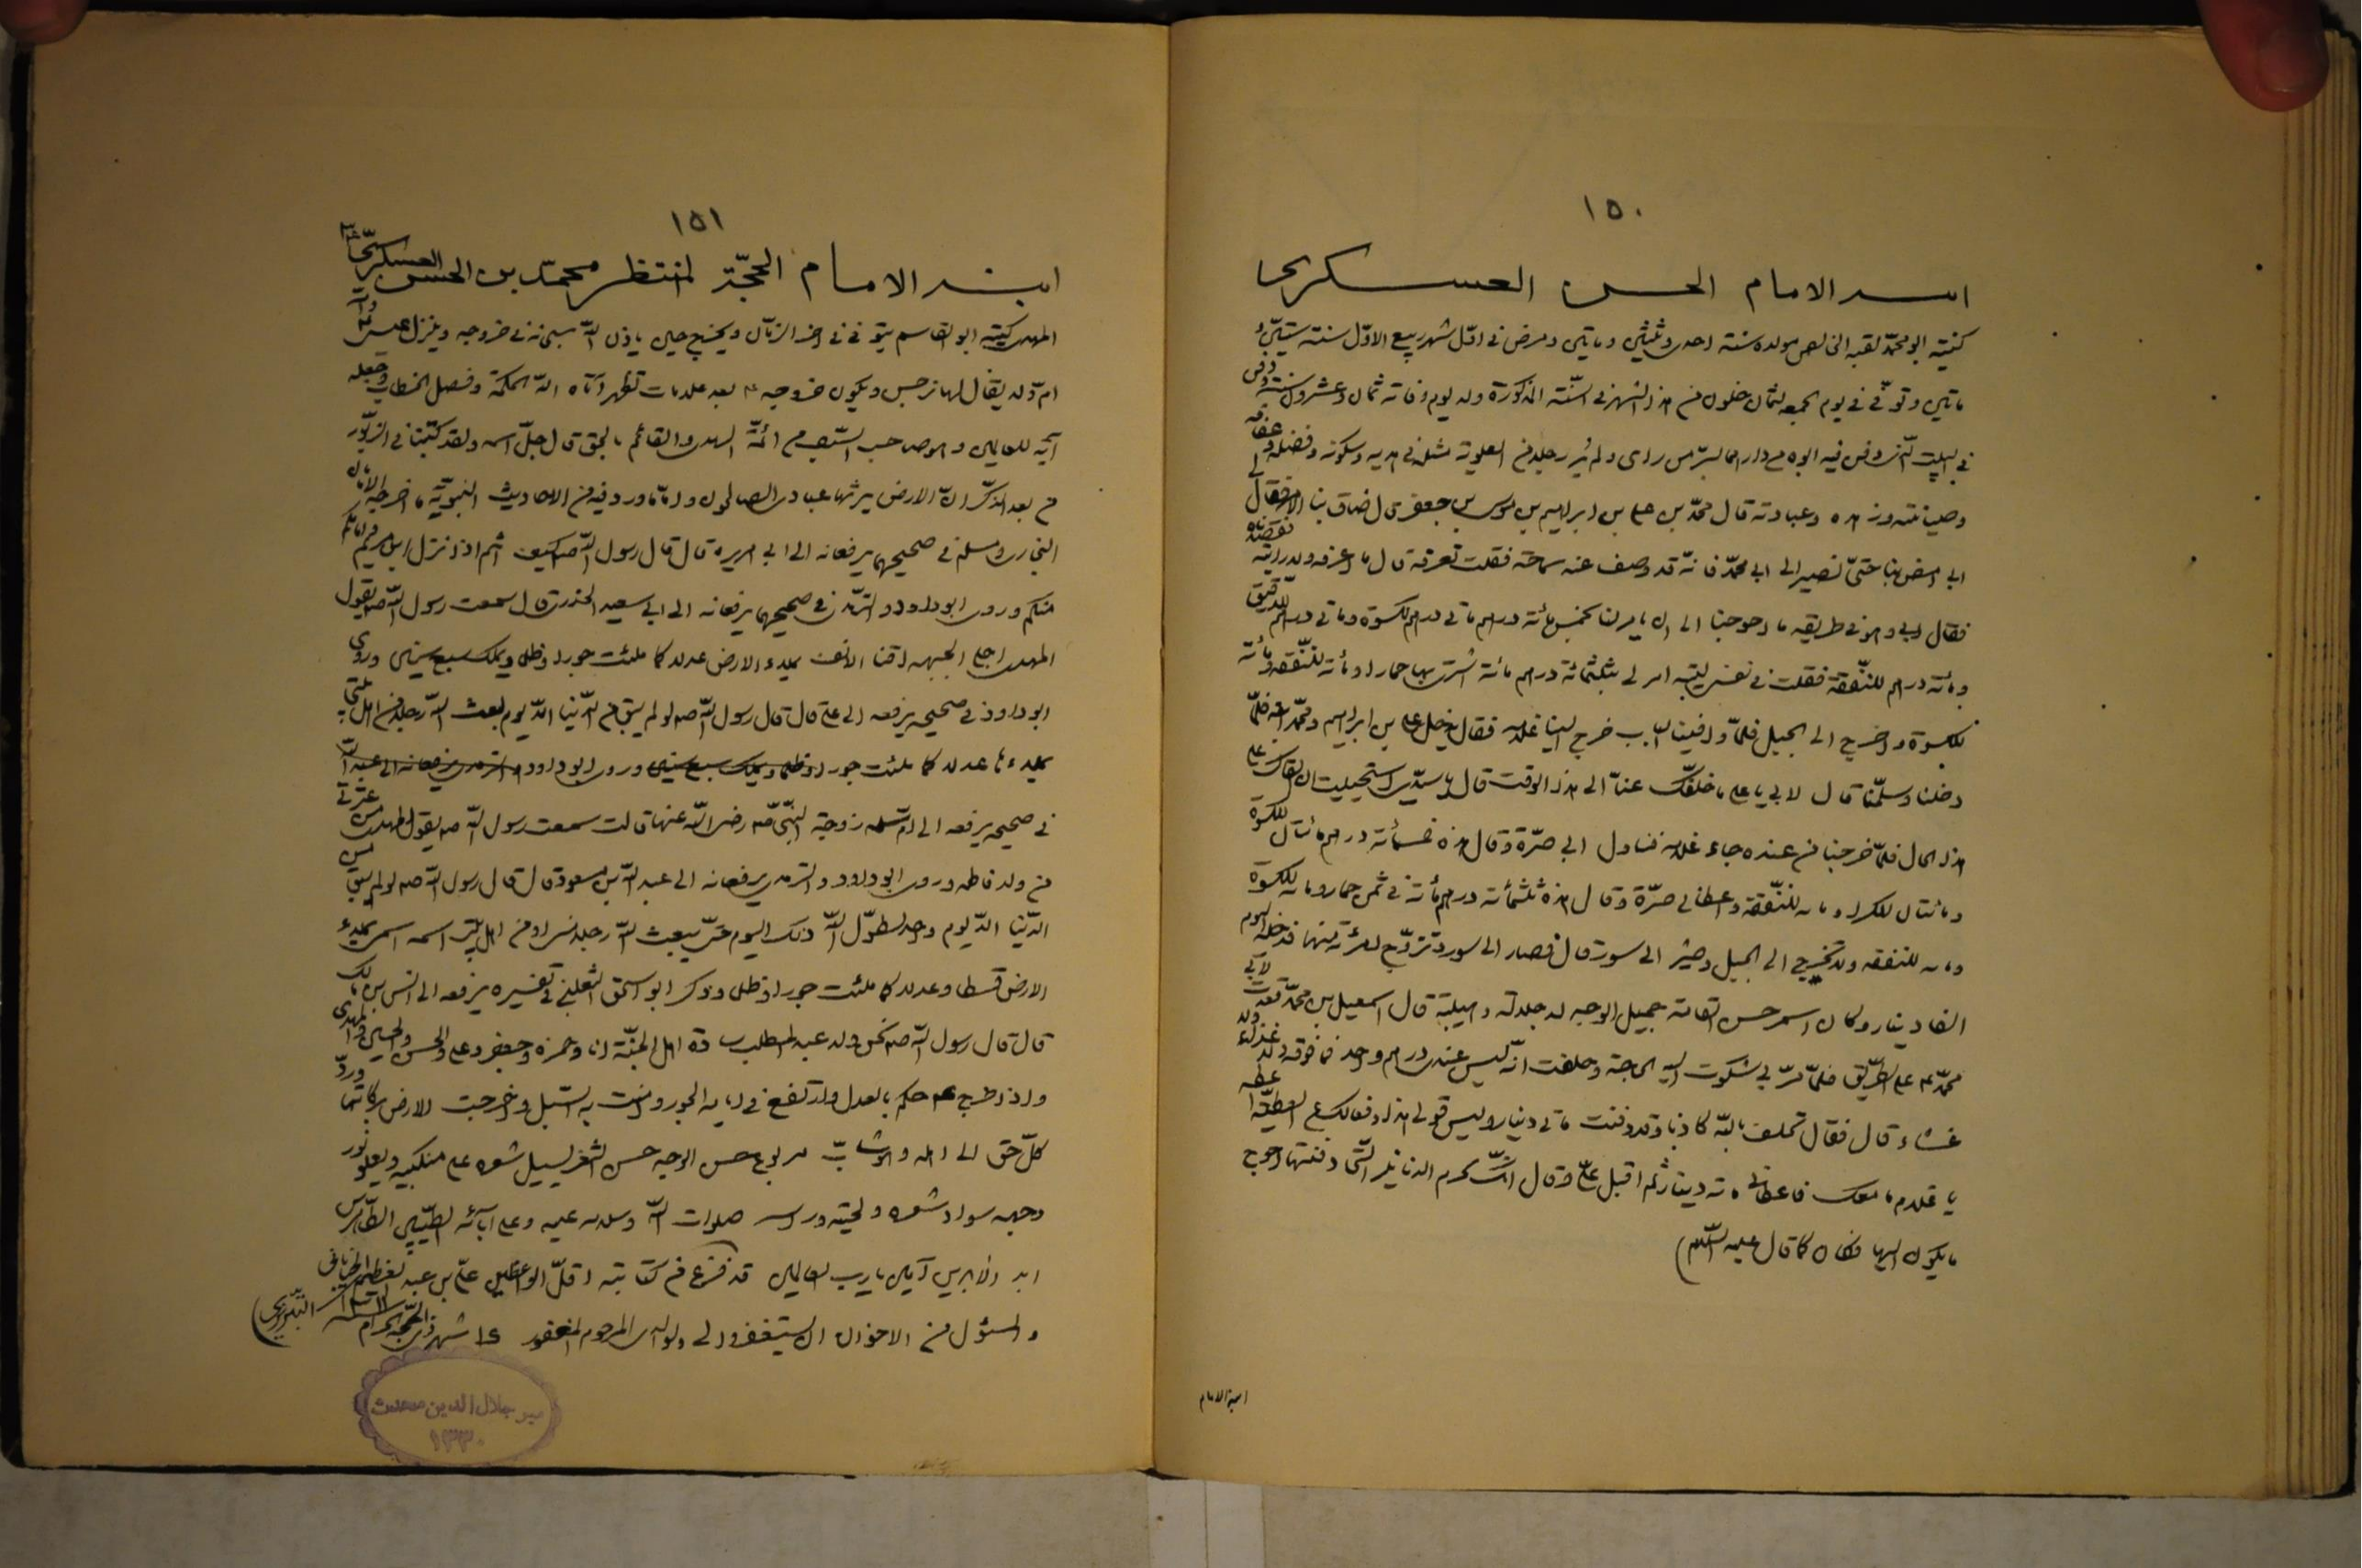 ١٥٠
ابنه الامام الحسن العسكرى
كنيته ابو محمّد لقبه الخالص مولده سنة احدى وثلثين وماتين ومرض فى اوّل شهر ربيع الاوّل سنة ستّين و
ماتين وتوفّى فى يوم الجمعه لثمان خلون من هذا الشهر فى السّنة المذكورة وله يوم وفاته ثمان وعشرون سنة ودفن
فى البيت الّذى دفن فيه ابوه من دارهما بسرّ من راى ولم ير رجلا من العلوية مثله فى هديه وسكونه وعفافه وفضله
وصيانته وزهده وعبادته قال محمّد بن على بن ابراهيم بن موسى بن جعفر قال ضاق بنا الامر فقال لى
ابى امض بنا حتّى نصير الى ابى محمّد فانّه قد وصف عنه سماحة فقلت تعرفه قال ما اعرفه ولا رايته فقصدناه
فقال ابى وهو فى طريقه ما احوجنا الى ان يامر لنا بخمس مائة درهم ماتى درهم لكسوة وماتى درهم للدّقيق
ومائة درهم للنّفقة فقلت فى نفسى ليته امر لى بثلثمائة درهم مائة اشترى بها حمارا ومائة للنّفقة ومائة
للكسوة واخرج الى الجبل فلمّا وافينا الباب خرج الينا غلامه فقال يدخل على بن ابراهيم ومحمّد ابنه فلمّا
دخلنا وسلّمنا قال لابى يا على ما خلّفك عنّا الى هذا الوقت قال يا سيّدى استحييت ان القاك على
هذا الحال فلمّا خرجنا من عنده جاء غلامه فناول ابى صرّة وقال هذه خمسمائة درهم مائتان للكسوة
ومائتان وماىه للنّفقة واعطانى صرّة وقال هذه ثلثمائة درهم مائة فى ثمن حمار وماىه للكسوة
وماىه للنفقه ولا تخرج الى الجبل وصر الى سورا قال فصار الى سورا تزوّج امرأة منها فدخله اليوم
الفا دينار وكان اسمر حسن القامة جميل الوجه له جلالة وهيبة قال اسمعيل بن محمّد قعدت لابى
محمّد ع على الطّريق فلمّا مرّ بى شكوت اليه الحاجة وحلفت انّه ليس عندى درهم واحد فما فوقه ولا غداء ولا
عشاء قال فقال تحلف باللّه كاذبا وقد دفنت ماتى دينار وليس قولى هذا دفعا لك عن العطيّة اعطه
يا غلام ما معك فاعطانى مائة دينار ثم اقبل علىّ وقال انّك تحرم الدنانير الّتى دفنتها احوج
ما يكون اليها فكان كما قال عليه السّلم)
ابنه الامام
١٥١
ابنه الامام الحجّة المنتظر محمّد بن الحسن العسكرىّ
المهدى كنيته ابو القاسم يتوفى فى اخر الزمان ويخرج حين ياذن اللّه سبحانه فى خروجه وينزل عيسى
امّ ولد يقال لها نرجس ويكون خروجه ع بعد علامات تظهر آتاه اللّه الحكمة وفصل الخطاب وجعله
آية للعالمين وهو صاحب السّيف من ائمّة الهدى والقائم بالحق قال جلّ اسمه ولقد كتبنا فى الزبور
من بعد الذّكر انّ الارض يرثها عبادى الصالحون وامّا ما ورد فيه من الاحاديث النّبويّة ما اخرجه الامامان
البخارى ومسلم فى صحيحهما يرفعانه الى ابى هريره قال قال رسول اللّه ص كيف انتم اذا نزل ابن مريم وامامكم
منكم وروى ابو داود والترمذى فى صحيحهما يرفعانه الى ابى سعيد الخدرى قال سمعت رسول اللّه ص يقول
المهدى اجلى الجبهه اقنا الانف يملاء الارض عدلا كما ملئت جورا وظلما ويملك سبع سنين وروى
ابو داود فى صحيحه يرفعه الى على قال قال رسول اللّه ص لو لم يبق من الدّنيا الّا يوم لبعث اللّه رجلا من اهل بيتى
يملاءها عدلا كما ملئت جورا وظلما ويملك سبع سنين وروى ابو داود والترمذى يرفعانه الى عبد اللّه
فى صحيحه يرفعه الى امّ سلمه زوجة النّبى ص رضى اللّه عنها قالت سمعت رسول اللّه ص يقول المهدى من عترتى
من ولد فاطمه وروى ابو داود والترمذى يرفعانه الى عبد اللّه بن مسعود قال قال رسول اللّه ص لو لم يبق من
الدّنيا الّا يوم واحد لطوّل اللّه ذلك اليوم حتّى يبعث اللّه رجلا منى او من اهل بيتى اسمه اسمى يملاء
الارض قسطا وعدلا كما ملئت جورا وظلما وذكر ابو اسحق الثعلبى فى تفسيره يرفعه الى انس بن مالك
قال قال رسول اللّه ص نحن ولد عبد المطلب سادة اهل الجنّة انا وحمزه وجعفر وعلى والحسن والحسين والمهدى
واذا خرج ع حكم بالعدل وارتفع فى ايامه الجور وامنت به السّبل واخرجت الارض بركاتها وردّ
كلّ حق الى اهله وهو شابّ مربوع حسن الوجه حسن الشّعر يسيل شعره على منكبيه ويعلو نور
وجهه سواد شعره ولحيته وراسه صلوات اللّه وسلامه عليه وعلى آبائه الطيّبين الطّاهرين
ابد الابدين آمين يا رب العالمين قد فرغ من كتابته اقلّ الواعظين علىّ بن عبد العظيم الخيابانى التّبريزى)
والمسؤل من الاخوان ان يستغفروا لى ولوالدى المرحوم المغفور ١٤ شهر ذى الحجّة الحرام
مير جلال الدين محدث
١٣٣٠